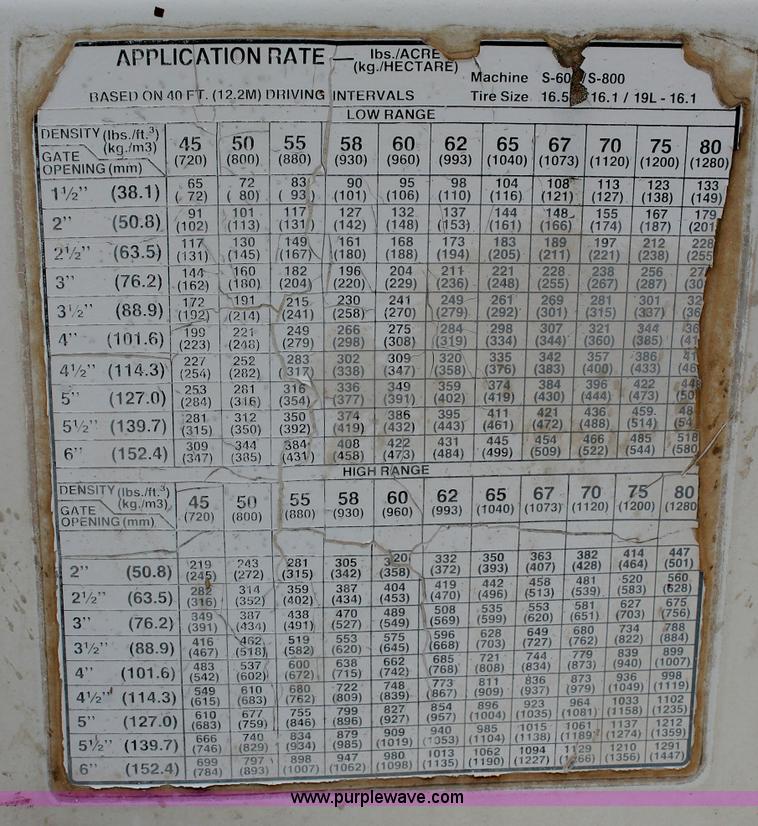 APPLICATION RATE — lbs./ACRE
(kg./HECTARE)
Machine S-60 /S-800
BASED ON 40 FT. (12.2M) DRIVING INTERVALS Tire Size 16.5 16.1 / 19L - 16.1
LOW RANGE
DENSITY (lbs./ft.³) 45 50 55 58 60 62 65 67 70 75 80
(kg./m3) (720) (800) (880) (930) (960) (993) (1040) (1073) (1120) (1200) (1280)
GATE
OPENING (mm)
1½" (38.1) 65 72 83 90 95 98 104 108 113 123 133
(72) (80) (93) (101) (106) (110) (116) (121) (127) (138) (149)
2" (50.8) 91 101 117 127 132 137 144 148 155 167 179
(102) (113) (131) (142) (148) (153) (161) (166) (174) (187) (201
2½" (63.5) 117 130 149 161 168 173 183 189 197 212 228
(131) (145) (167) (180) (188) (194) (205) (211) (221) (238) (255
3" (76.2) 144 160 182 196 204 211 221 228 238 256 27
(162) (180) (204) (220) (229) (236) (248) (255) (267) (287) (30
3½" (88.9) 172 191 215 230 241 249 261 269 281 301 32
(192) (214) (241) (258) (270) (279) (292) (301) (315) (337) (36
4" (101.6) 199 221 249 266 275 284 298 307 321 344 36
(223) (248) (279) (298) (308) (319) (334) (344) (360) (385) (41
4½" (114.3) 227 252 283 302 309 320 335 342 357 386 41
(254) (282) (317) (338) (347) (358) (376) (383) (400) (433) (46
5" (127.0) 253 281 316 336 349 359 374 384 396 422 448
(284) (316) (354) (377) (391) (402) (419) (430) (444) (473) (50
5½" (139.7) 281 312 350 374 386 395 411 421 436 459 48
(315) (350) (392) (419) (432) (443) (461) (472) (488) (514) (54
6" (152.4) 309 344 384 408 422 431 445 454 466 485 518
(347) (385) (431) (458) (473) (484) (499) (509) (522) (544) (580
HIGH RANGE
DENSITY (lbs./ft.³) 45 50 55 58 60 62 65 67 70 75 80
(kg./m3) (720) (800) (880) (930) (960) (993) (1040) (1073) (1120) (1200) (1280
GATE
OPENING (mm)
2" (50.8) 219 243 281 305 320 332 350 363 382 414 447
(245) (272) (315) (342) (358) (372) (393) (407) (428) (464) (501)
2½" (63.5) 282 314 359 387 404 419 442 458 481 520 560
(316) (352) (402) (434) (453) (470) (496) (513) (539) (583) (628)
3" (76.2) 349 387 438 470 489 508 535 553 581 627 675
(391) (434) (491) (527) (549) (569) (599) (620) (651) (703) (756)
3½" (88.9) 416 462 519 553 575 596 628 649 680 734 788
(467) (518) (582) (620) (645) (668) (703) (727) (762) (822) (884)
4" (101.6) 483 537 600 638 662 685 721 744 779 839 899
(542) (602) (672) (715) (742) (768) (808) (834) (873) (940) (1007)
4½" (114.3) 549 610 680 722 748 773 811 836 873 936 998
(615) (683) (762) (809) (839) (867) (909) (937) (979) (1049) (1119)
5" (127.0) 610 677 755 799 827 854 896 923 964 1033 1102
(683) (759) (846) (896) (927) (957) (1004) (1035) (1081) (1158) (1235)
5½" (139.7) 666 740 834 879 909 940 985 1015 1061 1137 1212
(746) (829) (934) (985) (1019) (1053) (1104) (1138) (1189) (1274) (1359)
6" (152.4) 699 797 898 947 980 1013 1062 1094 1129 1210 1291
(784) (893) (1007) (1062) (1098) (1135) (1190) (1227) (1266) (1356) (1447)
www.purplewave.com